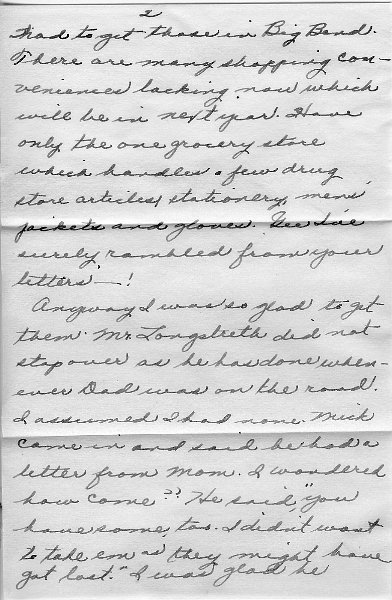 2
Had to get those in Big Bend.
There are many shopping con-
veniences lacking now which
will be in next year. Have
only the one grocery store
which handles a few drug
store articles, stationery, mens
jackets and gloves. Gee I've
surely rambled from your
letters—!
Anyway I was so glad to get
them. Mr. Longstreth did not
stop over as he has done when-
ever Dad was on the road.
I assumed I had none. Mick
came in and said he had a
letter from Mom. I wondered
how come?? He said, "you
have some, too. I didn't want
to take em as they might have
got lost." I was glad he